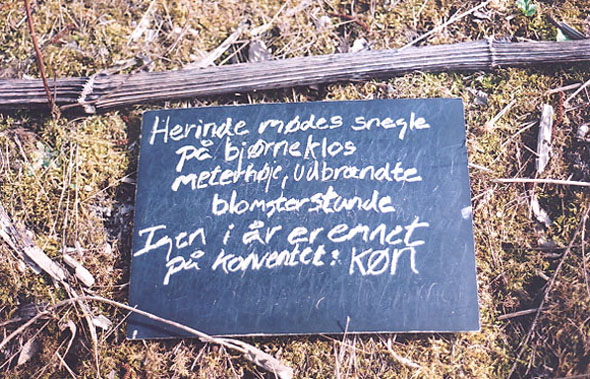 Herinde mødes snegle
på bjørneklos
meterhøje, udbrændte
blomsterstande
Igen i år er emnet
på konventet: KØN